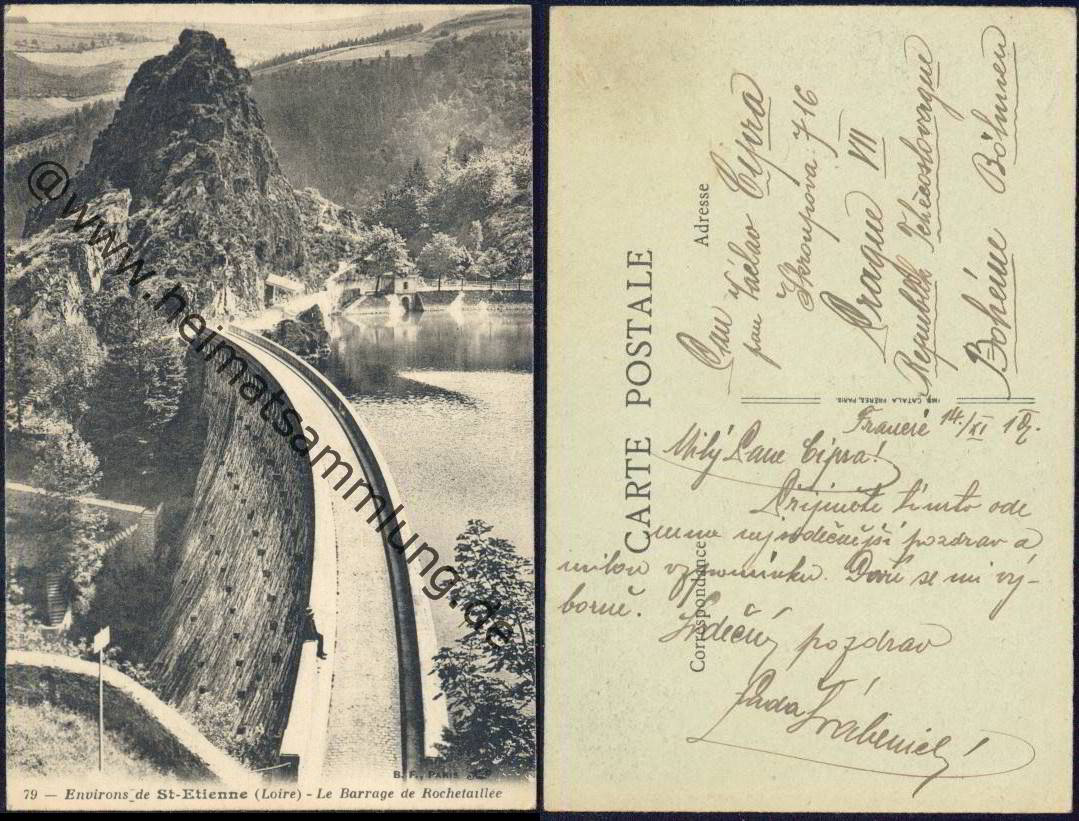 @www.heimatsammlung.de
B. F., PARIS
79 — Environs de St-Etienne (Loire) - Le Barrage de Rochetaillée
CARTE POSTALE
Correspondance
Adresse
IMP. CATALA FRÈRES, PARIS
Pan Václav Cipra
pan
Škroupova 716
Prague VII
Republik Tchécoslovaque
Bohéme Böhmen
14./XI 19
Milý Pane Cipra!
Přijměte tímto ode
mne nejvděčnější pozdrav a
milou vzpomínku. Daří se mi vý-
borně.
Srdečný pozdrav